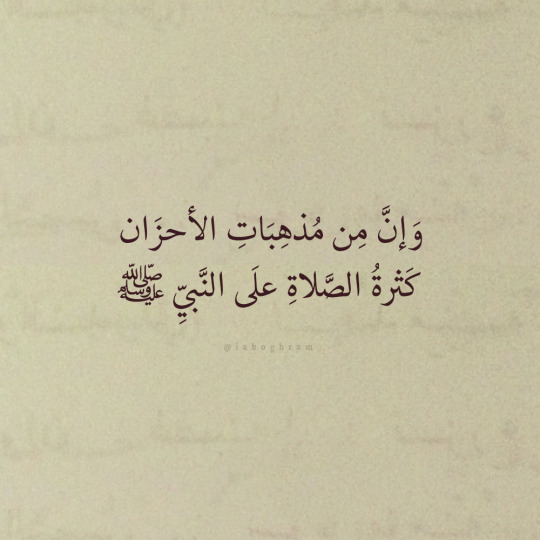 وَإنَّ مِن مُذهِبَاتِ الأحزَان
كَثرةُ الصَّلاةِ علَى النَّبيِّ ﷺ
@iaboghram